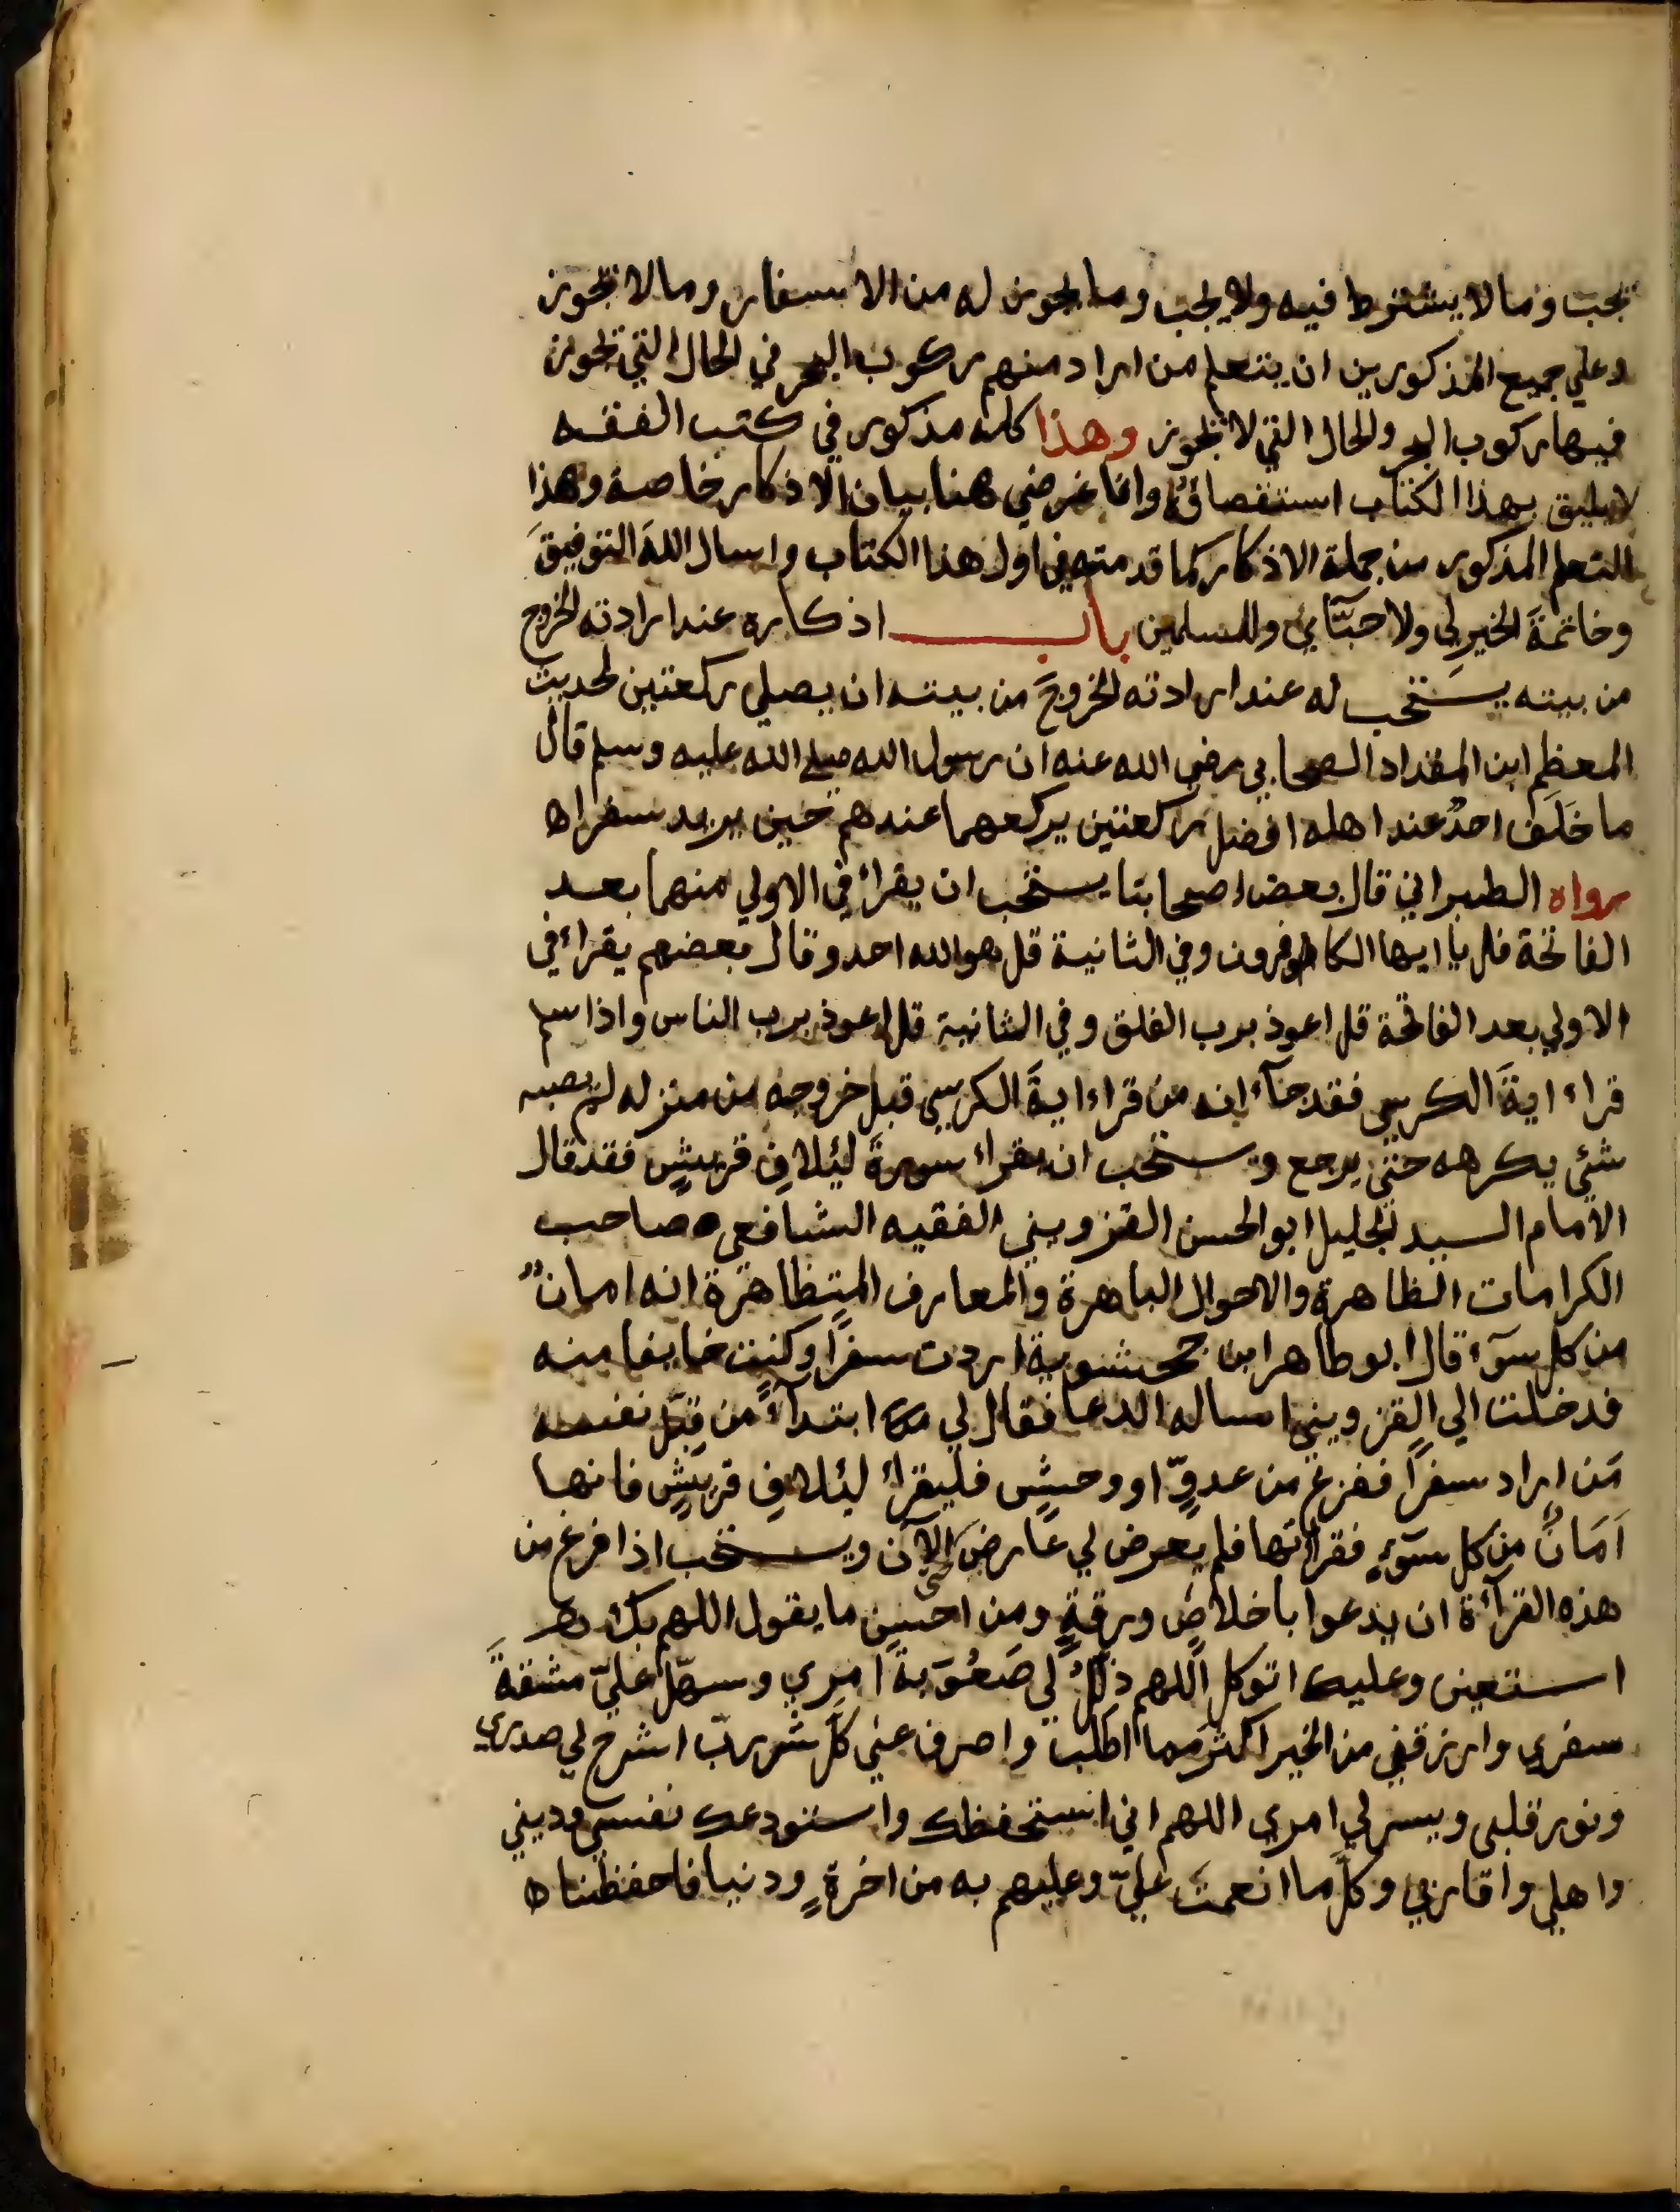 يجب وما لا يشترط فيه ولا يجب وما يجوز له من الاسفار وما لا يجوز
وعلي جميع المذكورين ان يتعلم من اراد منهم ركوب البحر في الحال التي يجوز
فيها ركوب البحر والحال التي لا يجوز وهذا كله مذكور في كتب الفقه
لا يليق بهذا الكتاب استقصاؤه وانما غرضي هنا بيان الاذكار خاصة وهذا
التعلم المذكور من جملة الاذكار كما قدمته في اول هذا الكتاب واسال اللهَ التوفيقَ
وخاتمةَ الخير لي ولاحبّآئي وللمسلمين باب اذكاره عند ارادته الخروج
من بيته يستحب له عند ارادته الخروجَ من بيته ان يصلي ركعتين لحديث
المعظم ابن المقداد الصحابي رضي الله عنه ان رسول الله صلي الله عليه وسلم قال
ما خَلَف احدٌ عند اهله افضل ركعتين يركعهما عندهم حين يريد سفرا ه
رواه الطبراني قال بعض اصحابنا يستحب ان يقراء في الاولي منهما بعد
الفاتحة قل يا ايها الكافرون وفي الثانية قل هو الله احد وقال بعضهم يقراء في
الاولي بعد الفاتحة قل اعوذ برب الفلق وفي الثانية قل اعوذ برب الناس واذا سلم
قراء ايةَ الكرسي فقد جآء انه من قراء ايةَ الكرسي قبل خروجه من منزله لم يصبه
شئي يكرهه حتي يرجع ويستحب ان يقراء سورةَ لئلافِ قريشٍ فقد قال
الامام السيد الجليل ابو الحسن القزويني الفقيه الشافعي صاحب
الكرامات الظاهرة والاحوال الباهرة والمعارف المتظاهرة انه امانٌ
من كل سوَء قال ابو طاهر ابن جحشوية اردت سفرًا وكنت خايفا منه
فدخلت الي القزويني اساله الدعا فقال لي ابتدآءً من قِبَل نفسه
مَن اراد سفرًا ففزع من عدوٍّ او وحشٍ فليقراء لئلافِ قريشٍ فانها
اَمَانٌ من كل سوَءٍ فقراتها فلم يعرض لي عارض حتي الآن ويستحب اذا فرغ من
هذه القرآءة ان يدعوا باخلاصٍ ورقةٍ ومن احسن ما يقول اللهم بك
استعين وعليك اتوكل اللهم ذلّلْ لي صَعُوَبةَ امري وسهّل عليّ مشقةَ
سفري وارزقني من الخير اكثر مما اطلب واصرف عني كلّ شرّ ربّ اشرح لي صدري
ونور قلبي ويسر لي امري اللهم اني استحفظك واستودعك نفسي وديني
واهلي واقاربي وكلّ ما انعمتَ عليّ وعليهم به من اخرةٍ ودنيا فاحفظنا ه